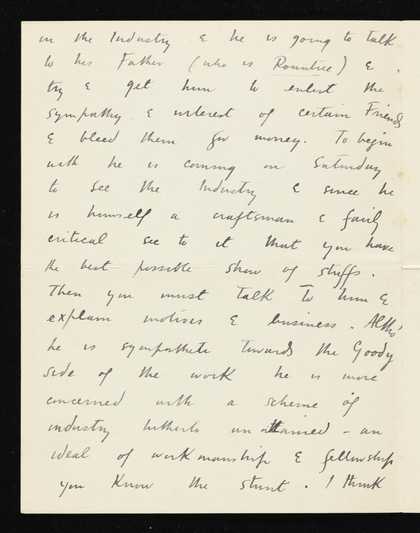 in the Industry & he is going to talk
to his Father (who is Rountree) &
try & get him to enlist the
sympathy & interest of certain Friends
& bleed them for money. To begin
with he is coming on Saturday
to see the Industry & since he
is himself a craftsman & fairly
critical see to it that you have
the best possible show of stuffs.
Then you must talk to him &
explain motives & business. Altho'
he is sympathetic towards the Goody
side of the work he is more
concerned with a scheme of
industry hitherto unattained - an
ideal of workmanship & fellowship
you know the stunt. I think